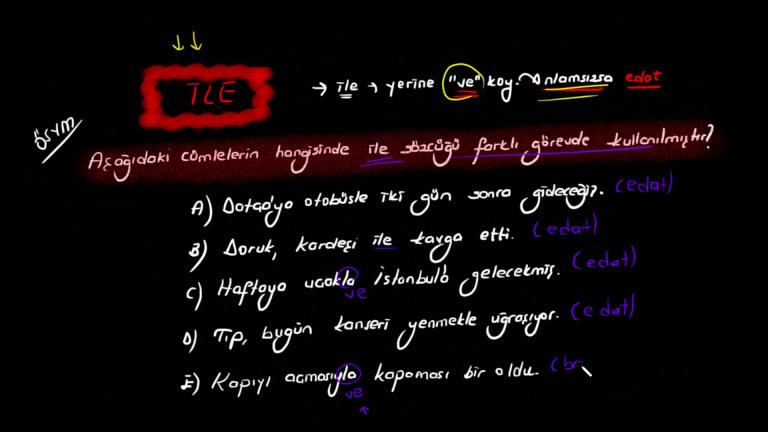 İLE
→ ile → yerine "ve" koy. → Anlamsızsa edat
ösym
Aşağıdaki cümlelerin hangisinde ile sözcüğü farklı görevde kullanılmıştır?
A) Datça'ya otobüsle iki gün sonra gideceğiz. (edat)
B) Doruk, kardeşi ile kavga etti. (edat)
C) Haftaya uçakla İstanbul'a gelecekmiş. (edat)
ve
D) Tıp, bugün kanseri yenmekle uğraşıyor. (edat)
E) Kapıyı açmasıyla kapaması bir oldu. (br
ve